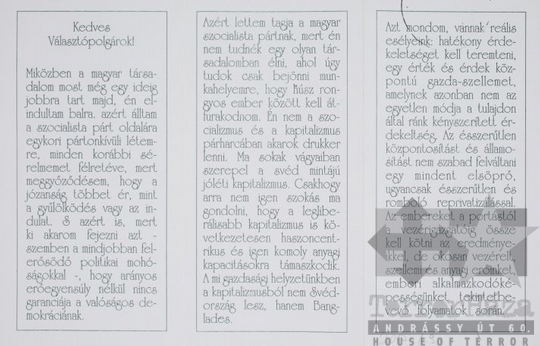 Kedves
Választópolgárok!
Miközben a magyar társa-
dalom most még egy ideig
jobbra tart majd, én el-
indultam balra. azért álltam
a szocialista párt oldalára
egykori pártonkívüli létem-
re, minden korábbi sé-
relmemet félretéve, mert
meggyőződésem, hogy a
józanság többet ér, mint
a gyűlölködés vagy az in-
dulat. S azért is, mert
ki akarom fejezni azt -
szemben a mindjobban fel-
erősödő politikai mohó-
ságokkal -, hogy arányos
erőegyensúly nélkül nincs
garanciája a valóságos de-
mokráciának.
Azért lettem tagja a magyar
szocialista pártnak, mert én
nem tudnék egy olyan tár-
sadalomban élni, ahol úgy
tudok csak bejönni mun-
kahelyemre, hogy húsz ron-
gyos ember között kell át-
furakodnom. Én nem a szo-
cializmus és a kapitalizmus
párharcában akarok drukker
lenni. Ma sokak vágyaiban
szerepel a svéd mintájú
jóléti kapitalizmus. Csakhogy
arra nem igen szokás ma
gondolni, hogy a leglibe-
rálisabb kapitalizmus is kö-
vetkezetesen haszoncent-
rikus és igen komoly anyagi
kapacitásokra támaszkodik.
A mi gazdasági helyzetünkben
a kapitalizmusból nem Svéd-
ország lesz, hanem Bang-
lades.
Azt mondom, vannak reális
esélyeink: hatékony érde-
keleltséget kell teremteni,
egy érték és érdek köz-
pontú gazda-szellemet,
amelynek azonban nem az
egyetlen módja a tulajdon
által ránk kényszerített ér-
dekeltség. Az ésszerűtlen
központosítást és államo-
sítást nem szabad felváltani
egy mindent elsöprő,
ugyancsak ésszerűtlen és
romboló reprivatizálással.
Az embereket a portástól
a vezérigazgatóig össze
kell kötni az eredmények-
kel, de okosan vezérel-
szellemi és anyagi erőinket,
emberi alkalmazkodóké-
pességünket tekintetbe-
vevő folyamatok során.
TerrorHáza
ANDRÁSSY ÚT 60.
HOUSE OF TERROR